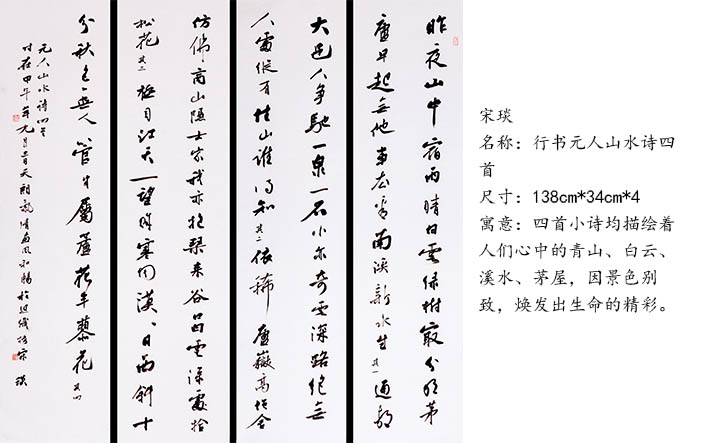 昨夜山中宿雨晴白雲绿樹最分明茅
廬早起無他事去看南溪新水生 其一 通都
大邑人争馳一泉一石小亦奇雲深路绝無
人處縱有佳山誰得知 其二 依稀廬嶽高僧舍
仿佛商山隱士家我亦抱琴来谷口白雲深處拾
松花 其三 極目江天一望賒寒烟漠漠日西斜十
分秋色無人管半屬蘆花半蓼花 其四
元人山水诗四首
时在甲午年元月吉日天朗氣清惠風和暢於 宋琰
宋琰
名称：行书元人山水诗四
首
尺寸：138cm*34cm*4
寓意：四首小诗均描绘着
人们心中的青山、白云、
溪水、茅屋，因景色别
致，焕发出生命的精彩。